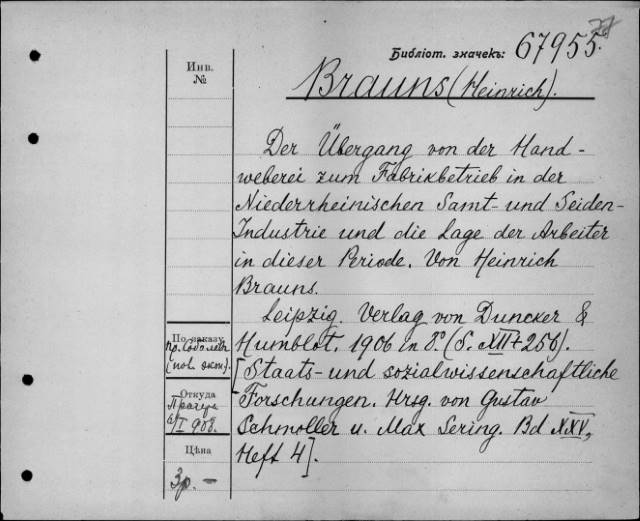 Библіот. значекъ: 67955.
Инв.
№
Brauns (Heinrich).
Der Übergang von der Hand-
weberei zum Fabrikbetrieb in der
Niederrheinischen Samt- und Seiden-
Industrie und die Lage der Arbeiter
in dieser Periode. Von Heinrich
Brauns.
Leipzig. Verlag von Duncker &
Humblot. 1906 in 8° (S. XII+256).
[Staats- und sozialwissenschaftliche
Forschungen. Hrsg. von Gustav
Schmoller u. Max Sering. Bd XXV,
Heft 4].
По заказу
пр. Соболева
(пол. экон).
Откуда
I 908.
Цѣна
3р. —